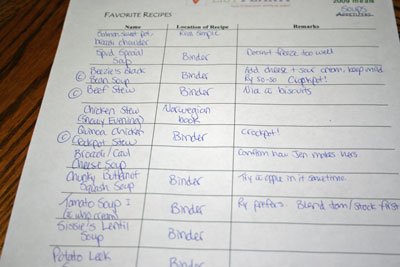 Soups
FAVORITE RECIPES Appetizers
Name Location of Recipe Remarks
Salmon sweet pot. Real Simple
chowder
Spud Special Binder Doesn't freeze too well
Soup
© Beezie's Black Binder Add cheese + sour cream, keep mild
Bean Soup Ry so-so Crockpot!
© Beef Stew Binder Nia as biscuits
Chicken Stew Norwegian
(Snowy Evening) book
© Quinoa Chicken Binder Crockpot!
Crockpot Stew
Broccoli/Caul Binder Confirm how Jen makes hers
Cheese Soup
Chunky Butternut Binder Try a apple in it sometime
Squash Soup
Tomato Soup I Binder Ry prefers. Blend tom/stock first
(w whip cream)
Sissie's Lentil Binder
Soup
Potato Leek Binder